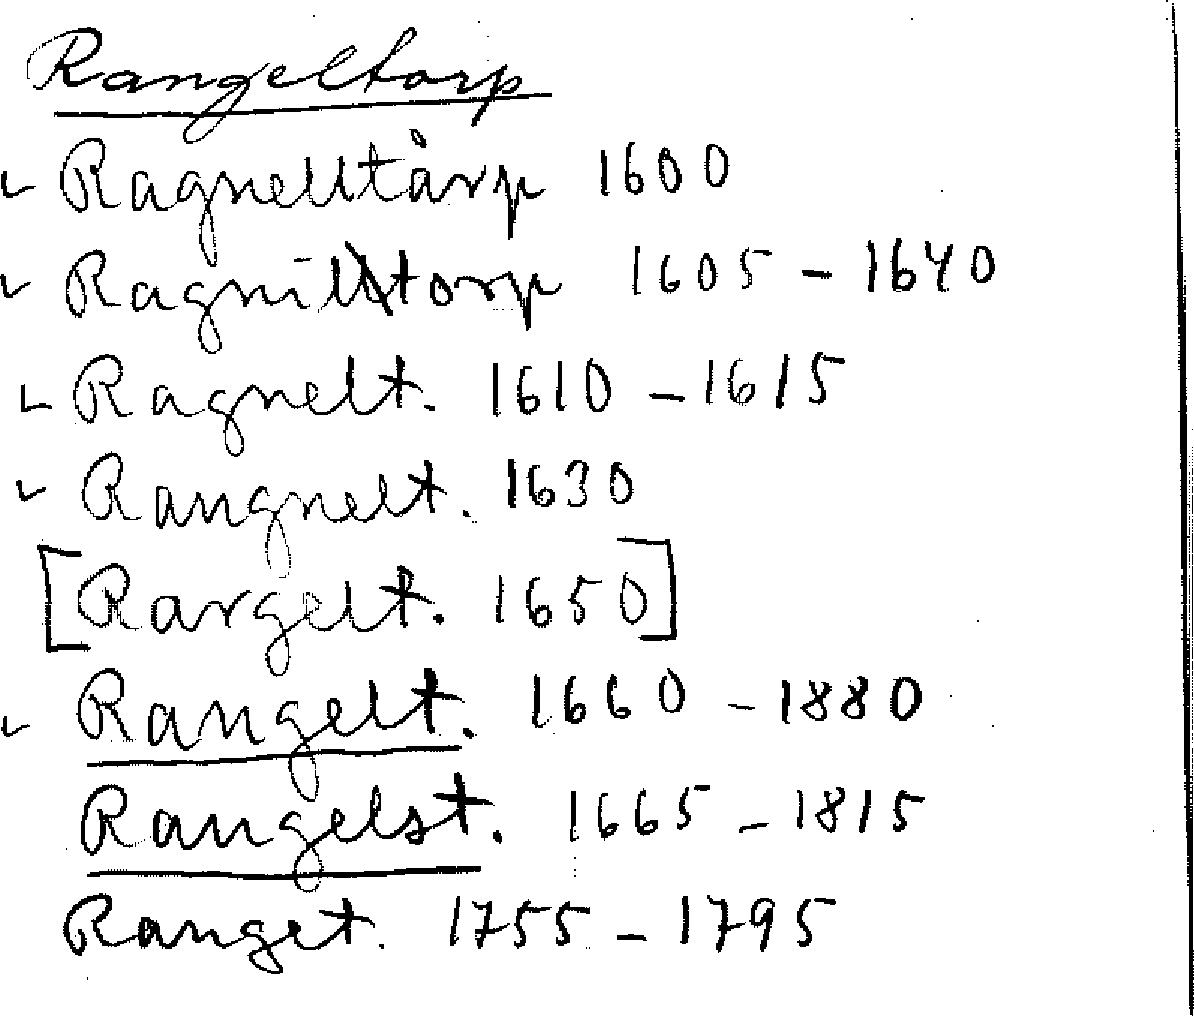 Rangeltorp
Ragnelltårp 1600
Ragniltorp 1605 - 1640
Ragnelt. 1610 - 1615
Rangnelt. 1630
[Rargelt. 1650]
Rangelt. 1660 - 1880
Rangelst. 1665 - 1815
Ranget. 1755 - 1795